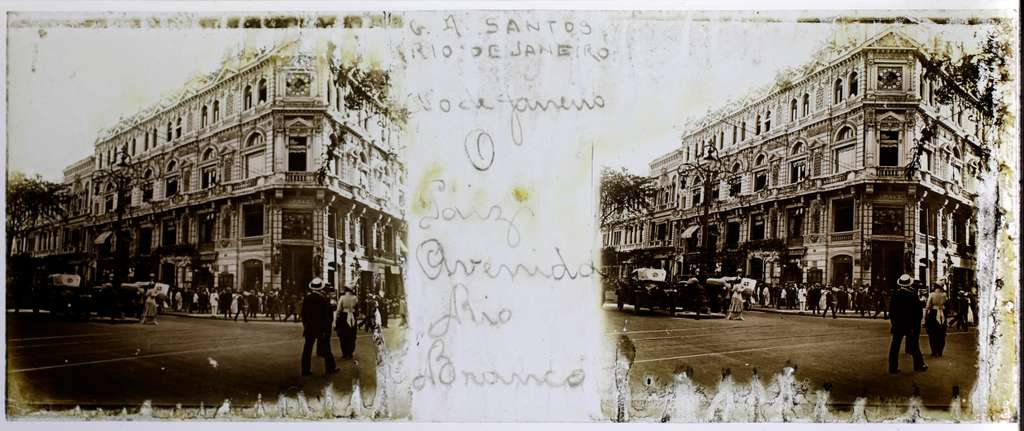 G. A. SANTOS
RIO DE JANEIRO
Rio de Janeiro
O
Paiz
Avenida
Rio
Branco